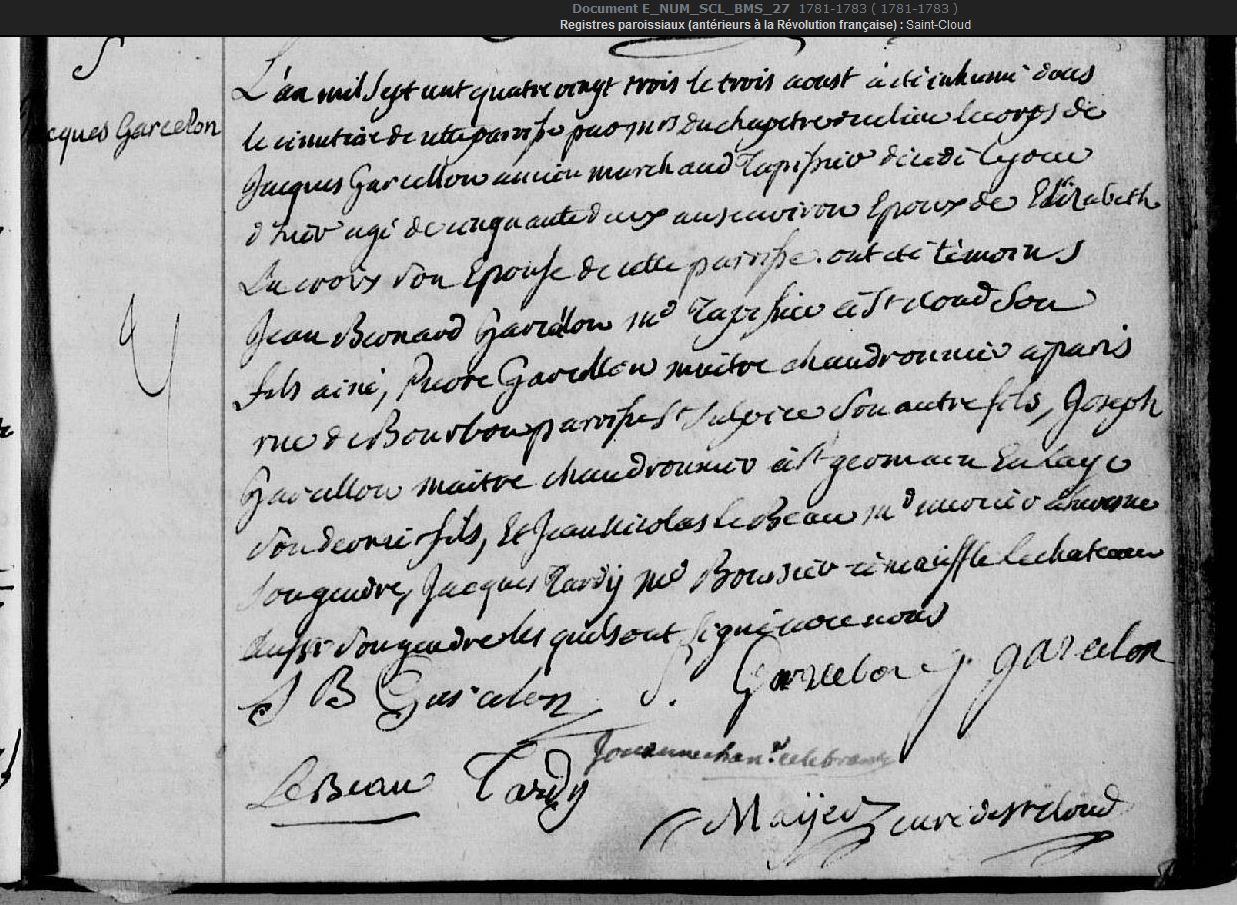 Document E_NUM_SCL_BMS_27 1781-1783 ( 1781-1783 )
Registres paroissiaux (antérieurs à la Révolution française) : Saint-Cloud
Jacques Garcelon
L'an mil sept cent quatre vingt trois le trois aoust a été inhumé dans
le cimetiere de cette paroisse par mrs du chapitre du lieu le corps de
Jacques Garcellon ancien marchand Tapissier décédé
d'hier agé de cinquante deux ans environ Epoux de Elizabeth
La croix son Epouse de cette paroisse. ont été témoins
Jean Bernard Garcelon md Tapissier à St cloud son
fils ainé, Pierre Garcellon maitre chaudronnier a paris
rue de Bourbon paroisse St Sulpice son autre fils, Joseph
Garcellon maitre chaudronnier à St germain En Laye
son dernier fils, Et Jean Nicolas Le Beau md mercier
son gendre, Jacques Tardy md Boursier le chateau
aussi son gendre les quels ont signé avec nous
J B Garcelon P. Garcelon J. garcelon
chane. celebrant
Le Beau Tardy
Mayer curé de St Cloud